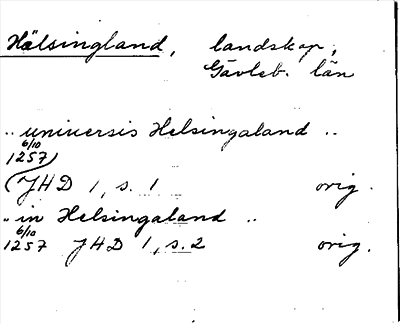 Hälsingland, landskap,
Gävleb. län
.. universis Helsingaland ..
6/10
1257
JHD 1, s. 1 orig.
.. in Helsingaland ..
6/10
1257 JHD 1, s. 2 orig.